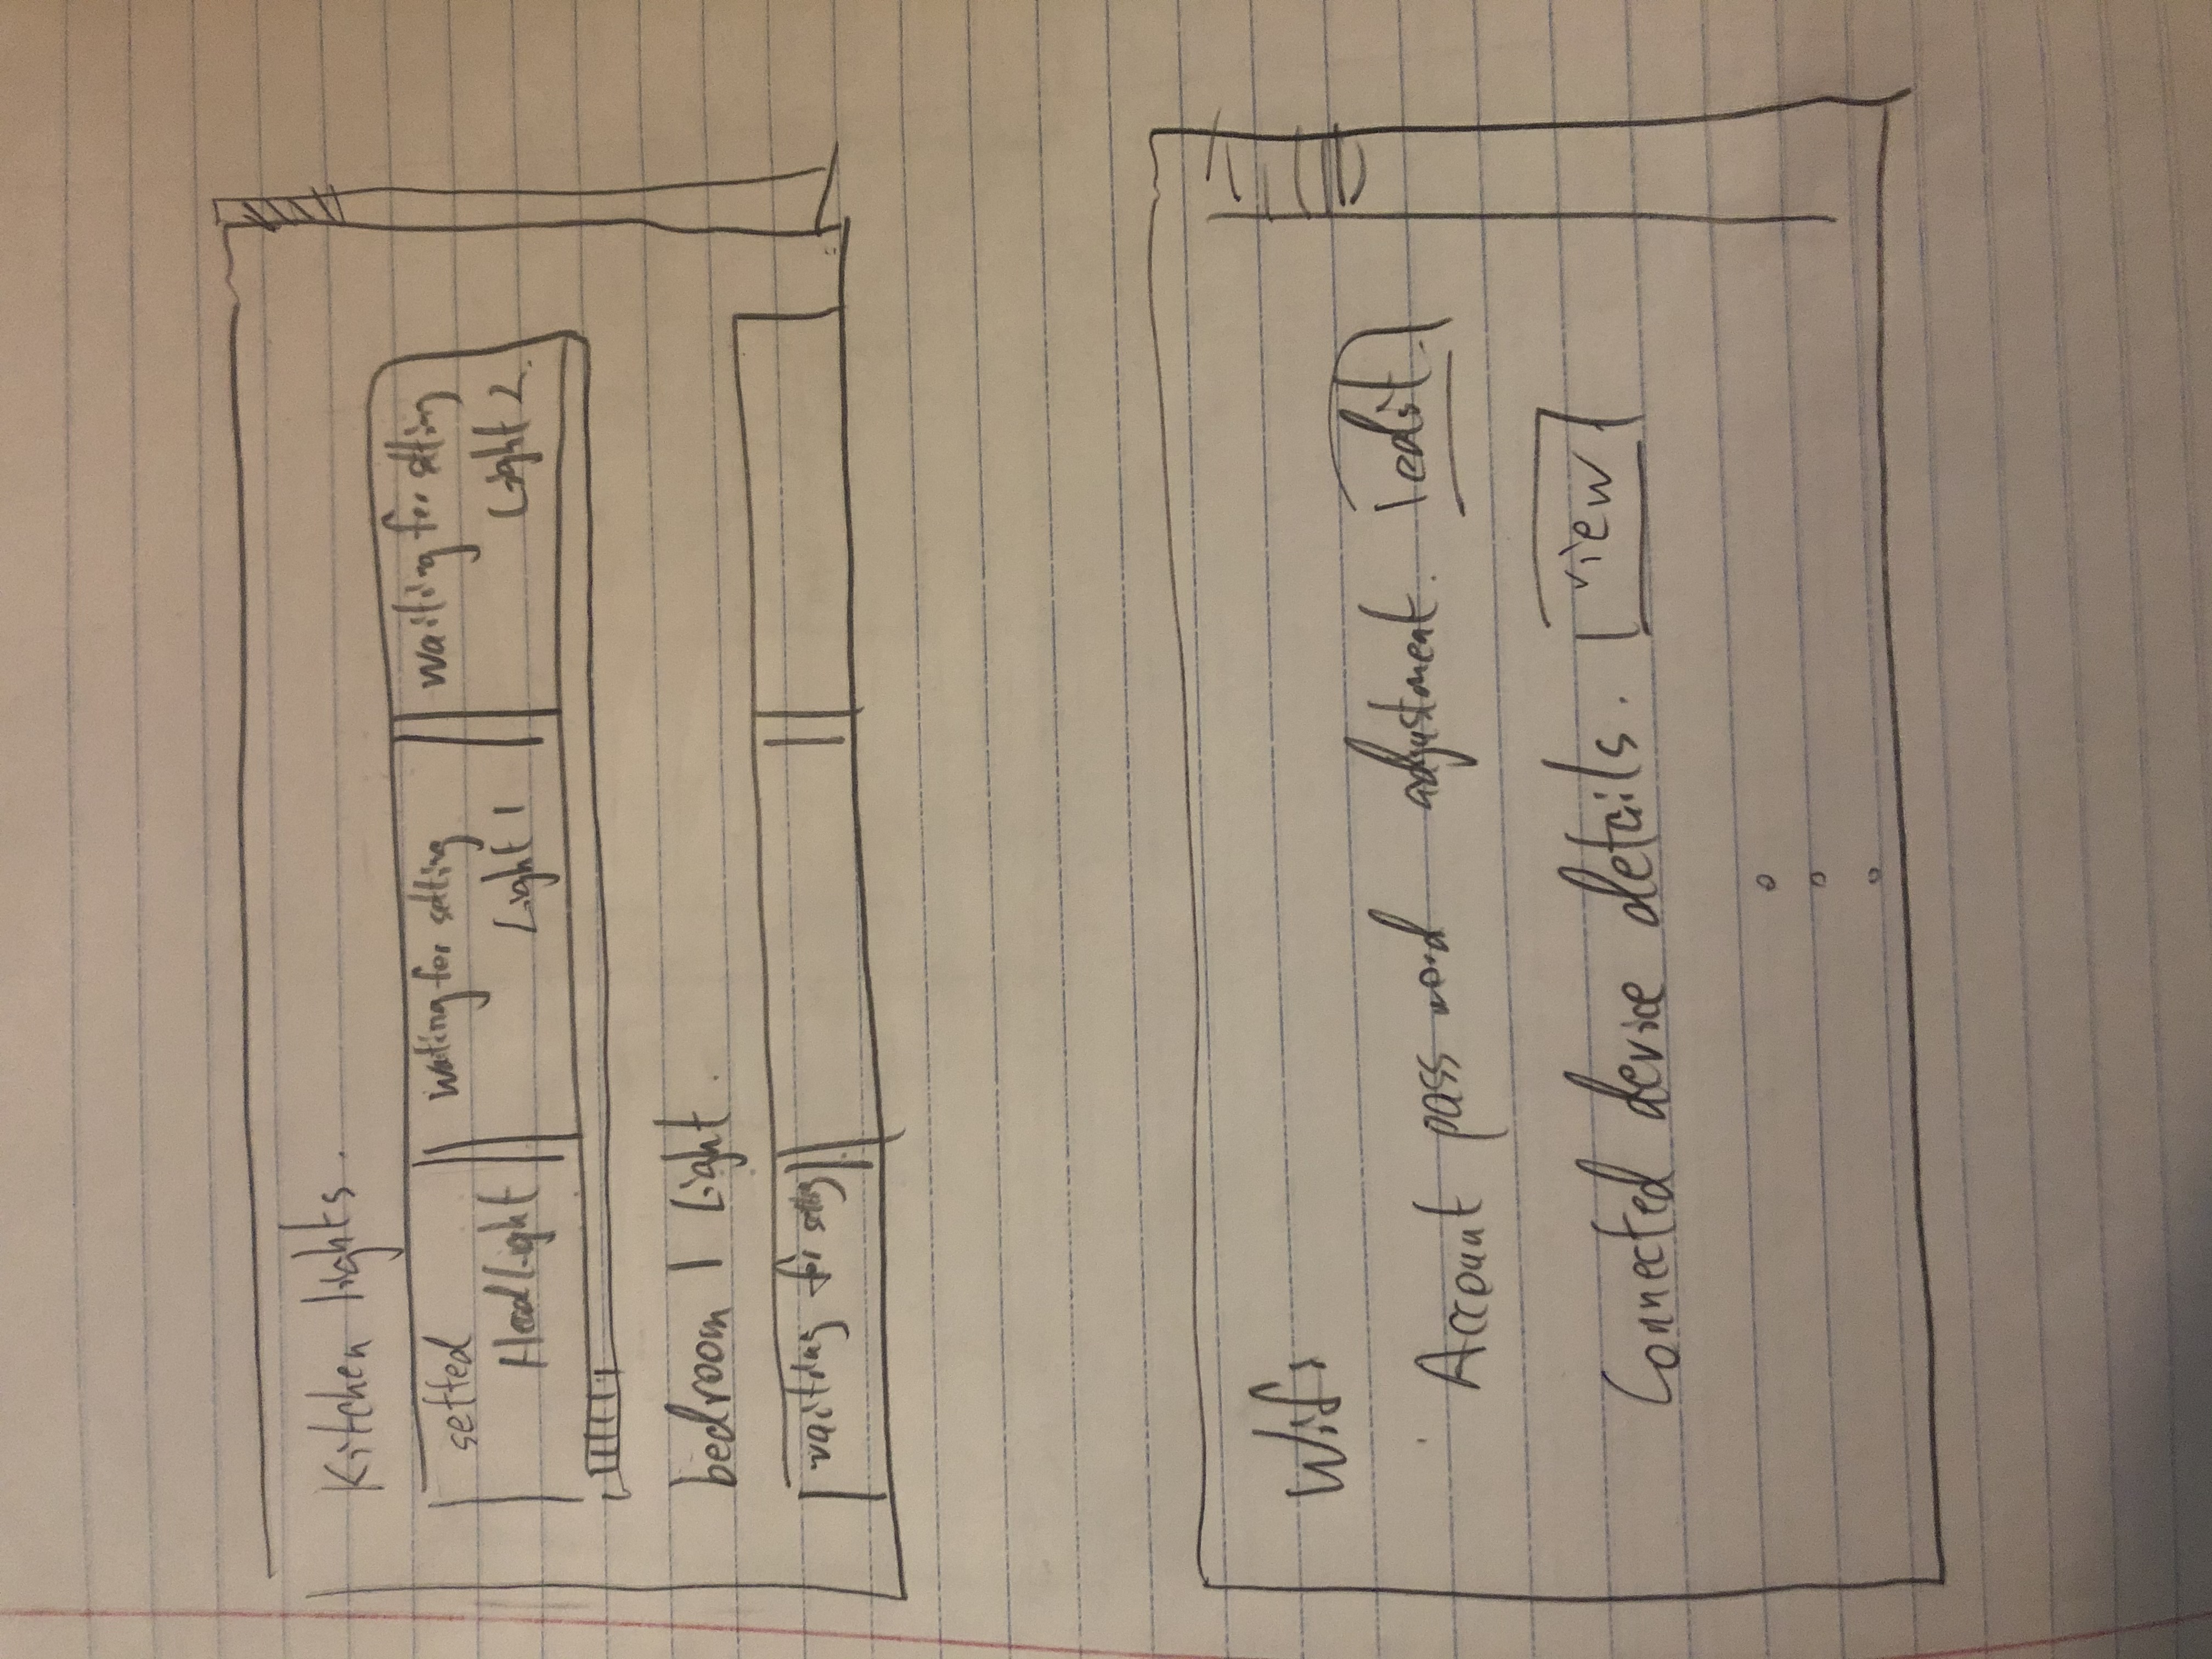 Kitchen lights.
setted
Headlight
waiting for setting
Light 1
waiting for setting
Light 2
bedroom 1 Light.
waiting for setting
Wifi
Account password adjustment. edit.
Connected device details. view